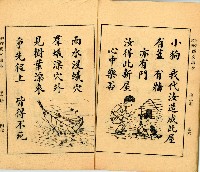 小狗 我代汝造成此屋
有蓋 有牆
亦有門
汝得此新屋
心中樂否
雨水浸蟻穴
羣蟻漂穴外
見樹葉漂來
爭先從上 皆得不死